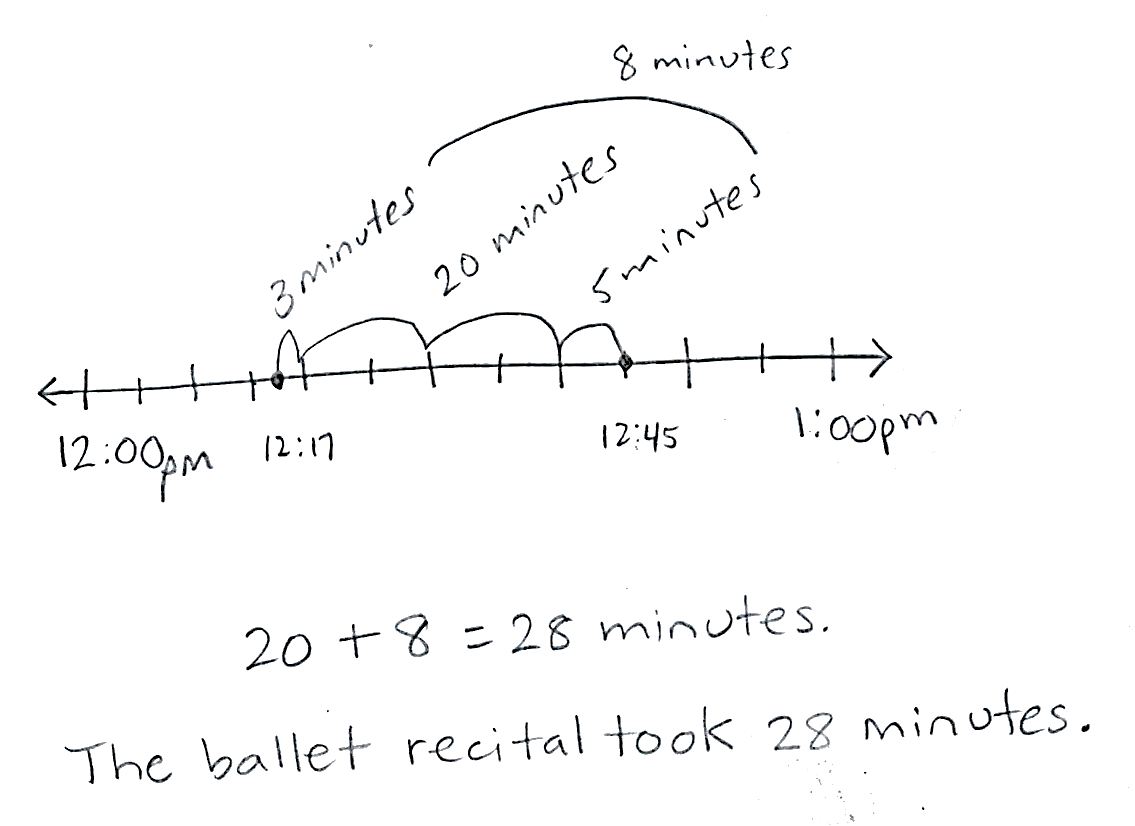 8 minutes
3 minutes
20 minutes
5 minutes
12:00pm
12:17
12:45
1:00pm
20 + 8 = 28 minutes.
The ballet recital took 28 minutes.